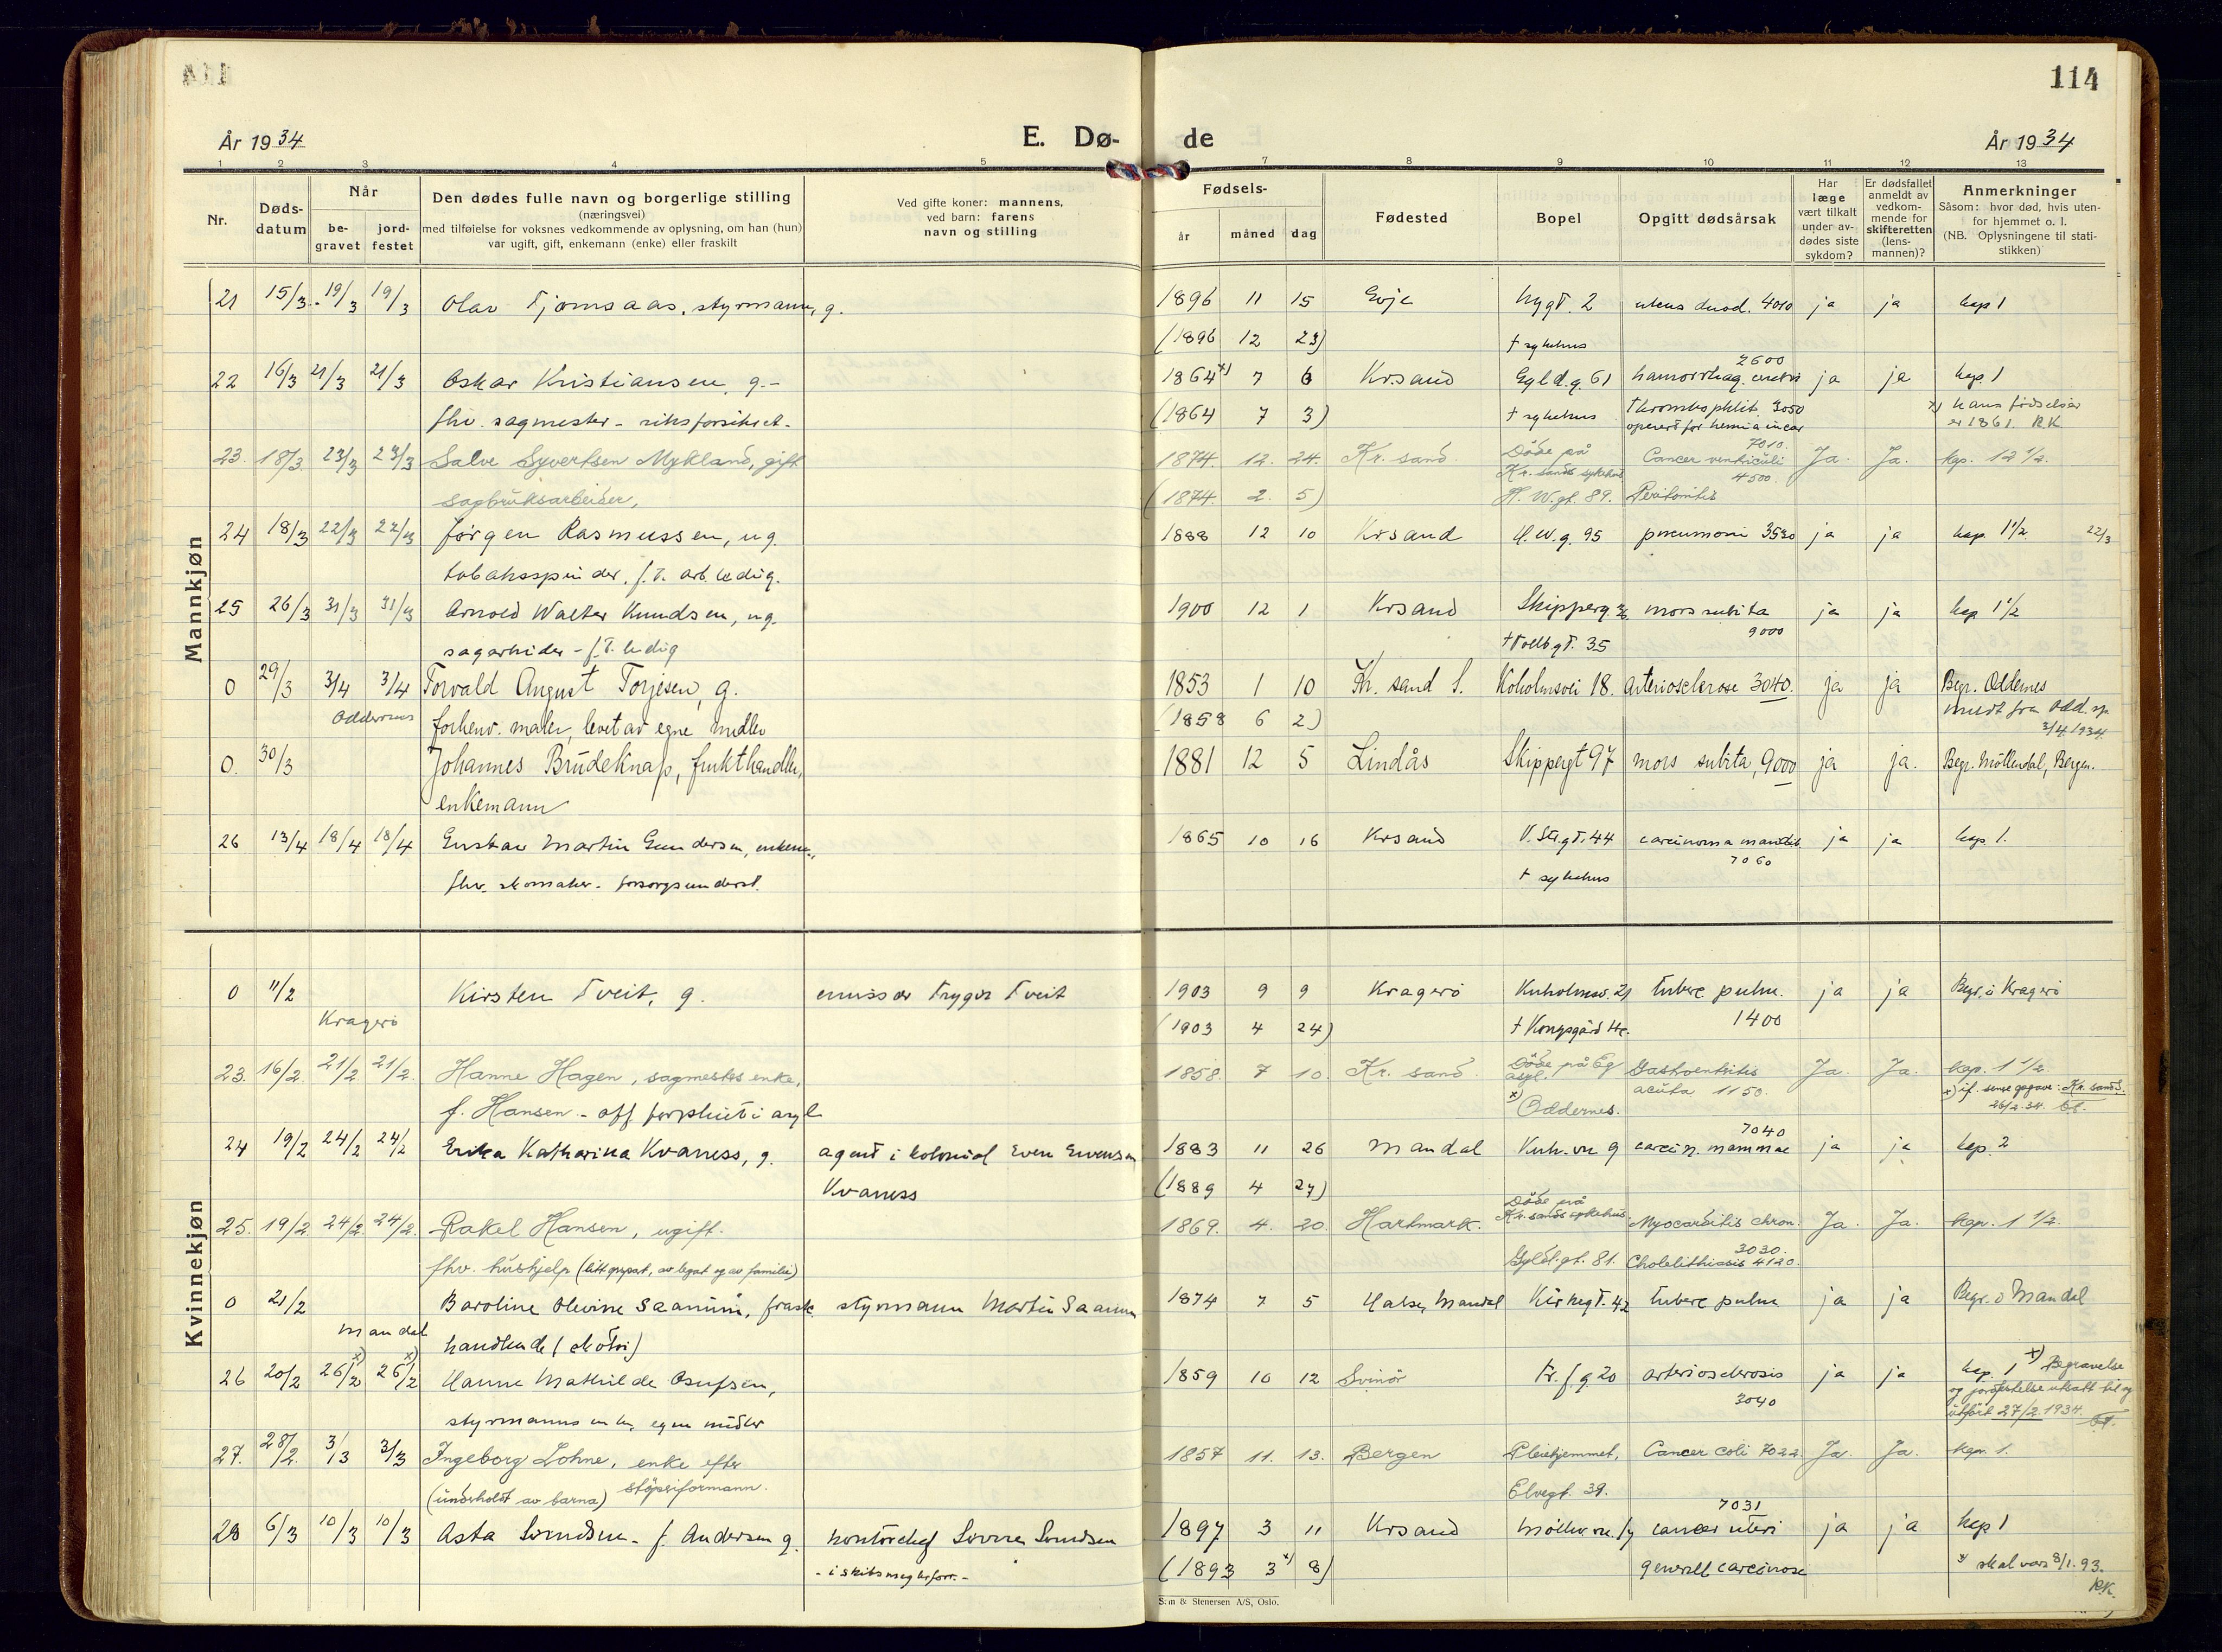 114
År 1934
E. Dø-
de
År 1934
1 2 3 4 5 7 8 9 10 11 12 13
Nr.
Døds-
datum
Når
be-
gravet
jord-
festet
Den dødes fulle navn og borgerlige stilling
(næringsvei)
med tilføielse for voksnes vedkommende av oplysning, om han (hun)
var ugift, gift, enkemann (enke) eller fraskilt
Ved gifte koner: mannens,
ved barn: farens
navn og stilling
Fødsels-
år måned dag
Fødested
Bopel
Opgitt dødsårsak
Har
læge
vært tilkalt
under av-
dødes siste
sykdom?
Er dødsfallet
anmeldt av
vedkom-
mende for
skifteretten
(lens-
mannen)?
Anmerkninger
Såsom: hvor død, hvis uten-
for hjemmet o. l.
(NB. Oplysningene til stati-
stikken)
Mannkjøn
21 15/3 19/3 19/3 Olav Tjomsaas, styrmann, g. 1896 11 15 Evje 2 ulcus duod. 4010 ja ja kap 1
(1896 12 23) † sykehus
22 16/3 21/3 21/3 Oskar Kristiansen, g.- 1864 x) 7 6 Krsand Gyld.g. 61 2600 hæmorrhag. cerebri ja ja kap. 1
fhv. sagmester - (1864 7 3) † sykehus thrombophlit. 3050 x) hans fødselsår
operert for hernia er 1861. RK
23. 18/3 23/3 23/3 Salve Syvertsen Mykland, gift 1874. 12. 24. Kr. sand. Døde på Kr. sands sykehus 7010. Cancer ventriculi 4500. Ja. Ja. kap. 1 1/2.
sagbruksarbeider, (1874. 2. 5) H. W.gt. 89. Peritonitis
24 18/3 22/3 22/3 Jørgen Rasmussen, ug. 1888 12 10 Krsand H.W.g. 95 pneumoni 3530 ja ja kap. 1 1/2 22/3
tobakspinder, f.t. arb.ledig.
25 26/3 31/3 31/3 Arnold Walter Knudsen, ug. 1900 12 1 Krsand Skipperg mors subita ja ja kap 1 1/2
sagarbeider - f.t. ledig † Tollbgt. 35 9000
0 29/3 3/4 3/4 Torvald August Torjesen, g. 1853 1 10 Kr. sand S. Koholmsvei 18. Arteriosclerose 3040. ja ja Begr. Oddernes
Oddernes forhenv. maler, levet av egne midler (1858 6 2) meldt fra Odd. sp.
3/4 1934
0. 30/3 Johannes Brudeknap, frukthandler, 1881 12 5 Lindås Skippergt 97 mors subita, 9000 ja ja. Begr. Möllendal, Bergen.
enkemann
26 13/4 18/4 18/4 Gustav Martin Gundersen, enkem., 1865 10 16 Krsand V. Str.gt. 44 carcinoma mandib. ja ja kap. 1.
fhv. skomaker - forsorgsunderst. † sykehus 7060
Kvinnekjøn
0 11/2 Kirsten Tveit, g. emissær Trygve Tveit 1903 9 9 Kragerö Kuholmsv. 21 tuberc pulm. ja ja Begr. i Kragerö
Kragerö (1903 4 24) † Kongsgård 1400
23. 16/2 21/2 21/2. Hanne Hagen, sagmesters enke, 1858. 7 10. Kr. sand. Døde på Eg asyl. Gastroenteritis Ja. Ja. kap. 1 1/2.
f. Hansen - off. forpleiet i asyl x) Oddernes. acuta 1150. x) if. senere opgave: Kr. sand S.
26/2.34.
24 19/2 24/2 24/2 Erika Katharina Kvaness, g. agent i kolonial Even Evensen 1883 11 26 Mandal Kuh.vn 9 7040 carcin. mammae ja ja kap. 2
Kvaness (1889 4 27)
25. 19/2. 24/2. 24/2. Rakel Hansen, ugift. 1869. 4. 20. Hartmark. Døde på Kr. sands sykehus Myocarditis chron. Ja. Ja. kap. 1 1/2.
fhv. hushjelp (litt opspart, av legat og av familie) Gyld.gt. 81. 3030. Cholelithiasis 4120.
0 21/2 Baroline Olevine Saanum, frask. styrmann Martin Saanum 1874 7 5 Halse, Mandal Kirkegt. 42 tuberc pulm ja ja Begr. i Mandal
Mandal handlende
26 20/2 26/2 x) 26/2 x) Hanne Mathilde Osufsen, 1859 10 12 Svinör Tr. f. g 20 arteriosclerosis ja ja kap. 1 x) Begravelse
styrmanns enke, egne midler 3040 og jordfestelse utsatt til og
utført 27/2.1934.
27. 28/2. 3/3 3/3 Ingeborg Lohne, enke efter 1857 11. 13. Bergen Pleiehjemmet, Cancer coli 7022. Ja. Ja. kap. 1.
(underholdt av barna) støperiformann. Elvegt. 39.
28 6/3 10/3 10/3 Asta - f. Andersen g. kontorchef 1897 3 11 Krsand 7031 cancer uteri ja ja kap 1
(1893 3 x) 8) generell carcinose x) skal være 8/1.93.
RK.
& Stenersen A/S, Oslo.